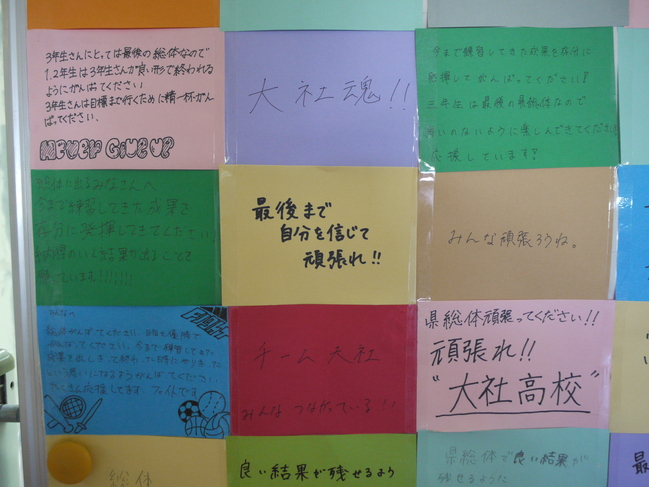 3年生さんにとっては最後の総体なので
1.2年生は3年生さんが良い形で終われる
ようにがんばってください
3年生さんは目標まで行くために精一杯がん
ばってください。
NEVER GIVE UP
大社魂!!
今まで練習してきた成果を存分に
発揮してがんばってください!
三年生は最後の県総体なので
悔いのないように楽しんできてください
応援しています!
総体に出るみなさんへ
今まで練習してきた成果を
存分に発揮してきてください!
納得のいく結果が出ることを
願っています!!!!!!
最後まで
自分を信じて
頑張れ!!
みんな頑張ろうね。
みんなへ
FIGHT
総体がんばってください。目指せ優勝で
がんばってください。今まで練習してきた
たくさん応援してます。ファイトです
チーム大社
みんなつながっている!!
県総体頑張ってください!!
頑張れ!!
"大社高校"
総体
良い結果が残せるよう
県総体で良い結果が
残せるように
最